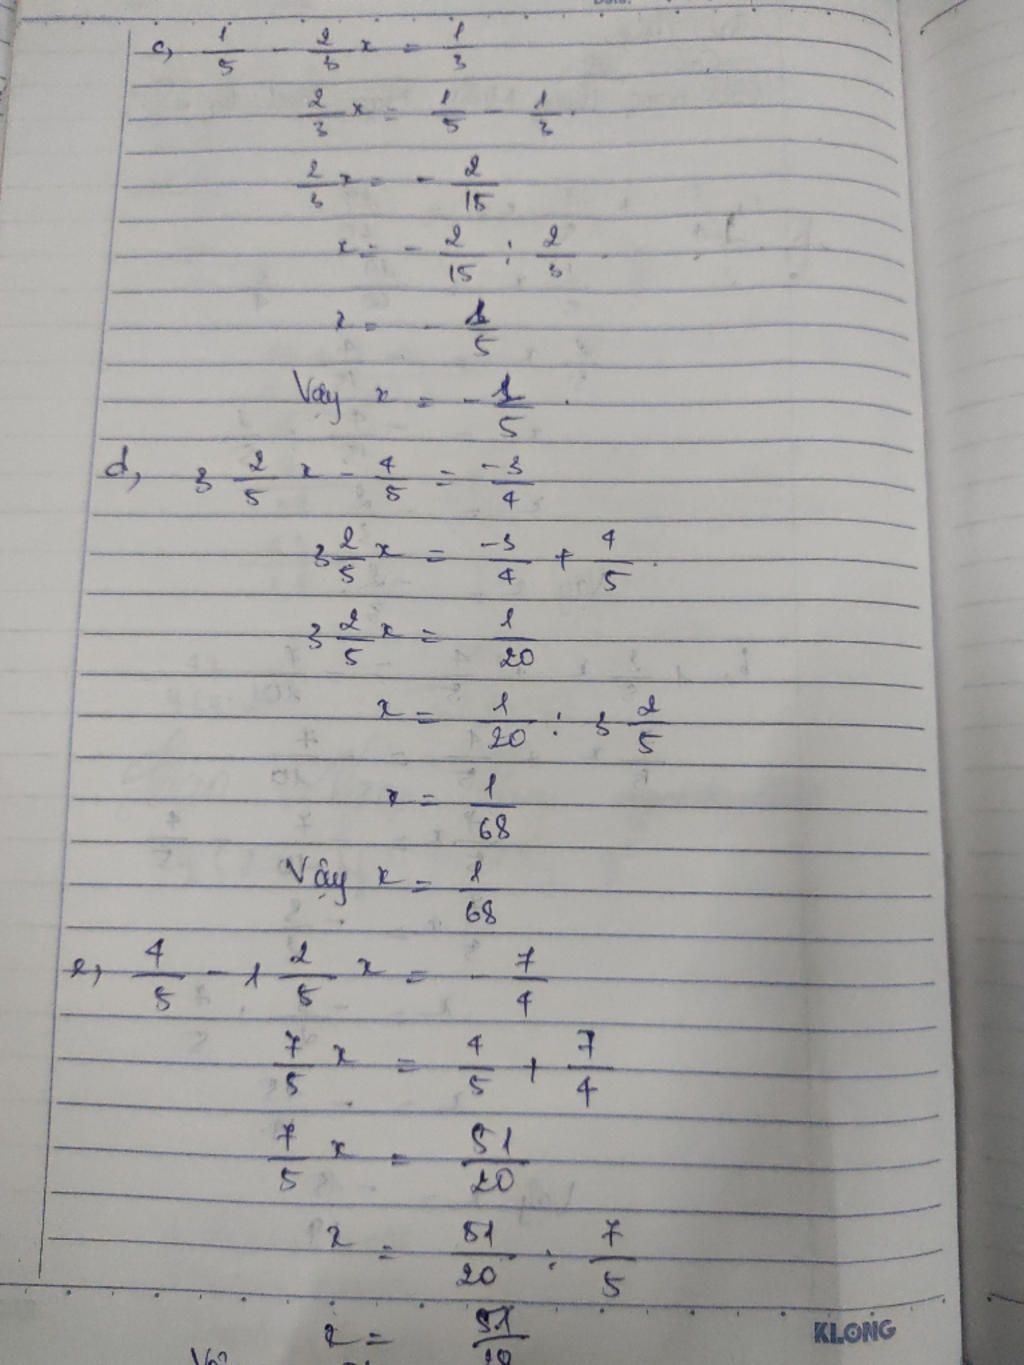 c, 1/5 - 2/3 x = 1/3
2/3 x = 1/5 - 1/3.
2/3 x = - 2/15
x = - 2/15 : 2/3
x = - 1/5
Vậy x = - 1/5.
d, 3 2/5 x - 4/5 = -3/4
3 2/5 x = -3/4 + 4/5.
3 2/5 x = 1/20
x = 1/20 : 3 2/5
x = 1/68
Vậy x = 1/68
e, 4/5 - 1 2/5 x = - 7/4
7/5 x = 4/5 + 7/4
7/5 x = 51/20
x = 51/20 : 7/5
x = 51/
KLONG